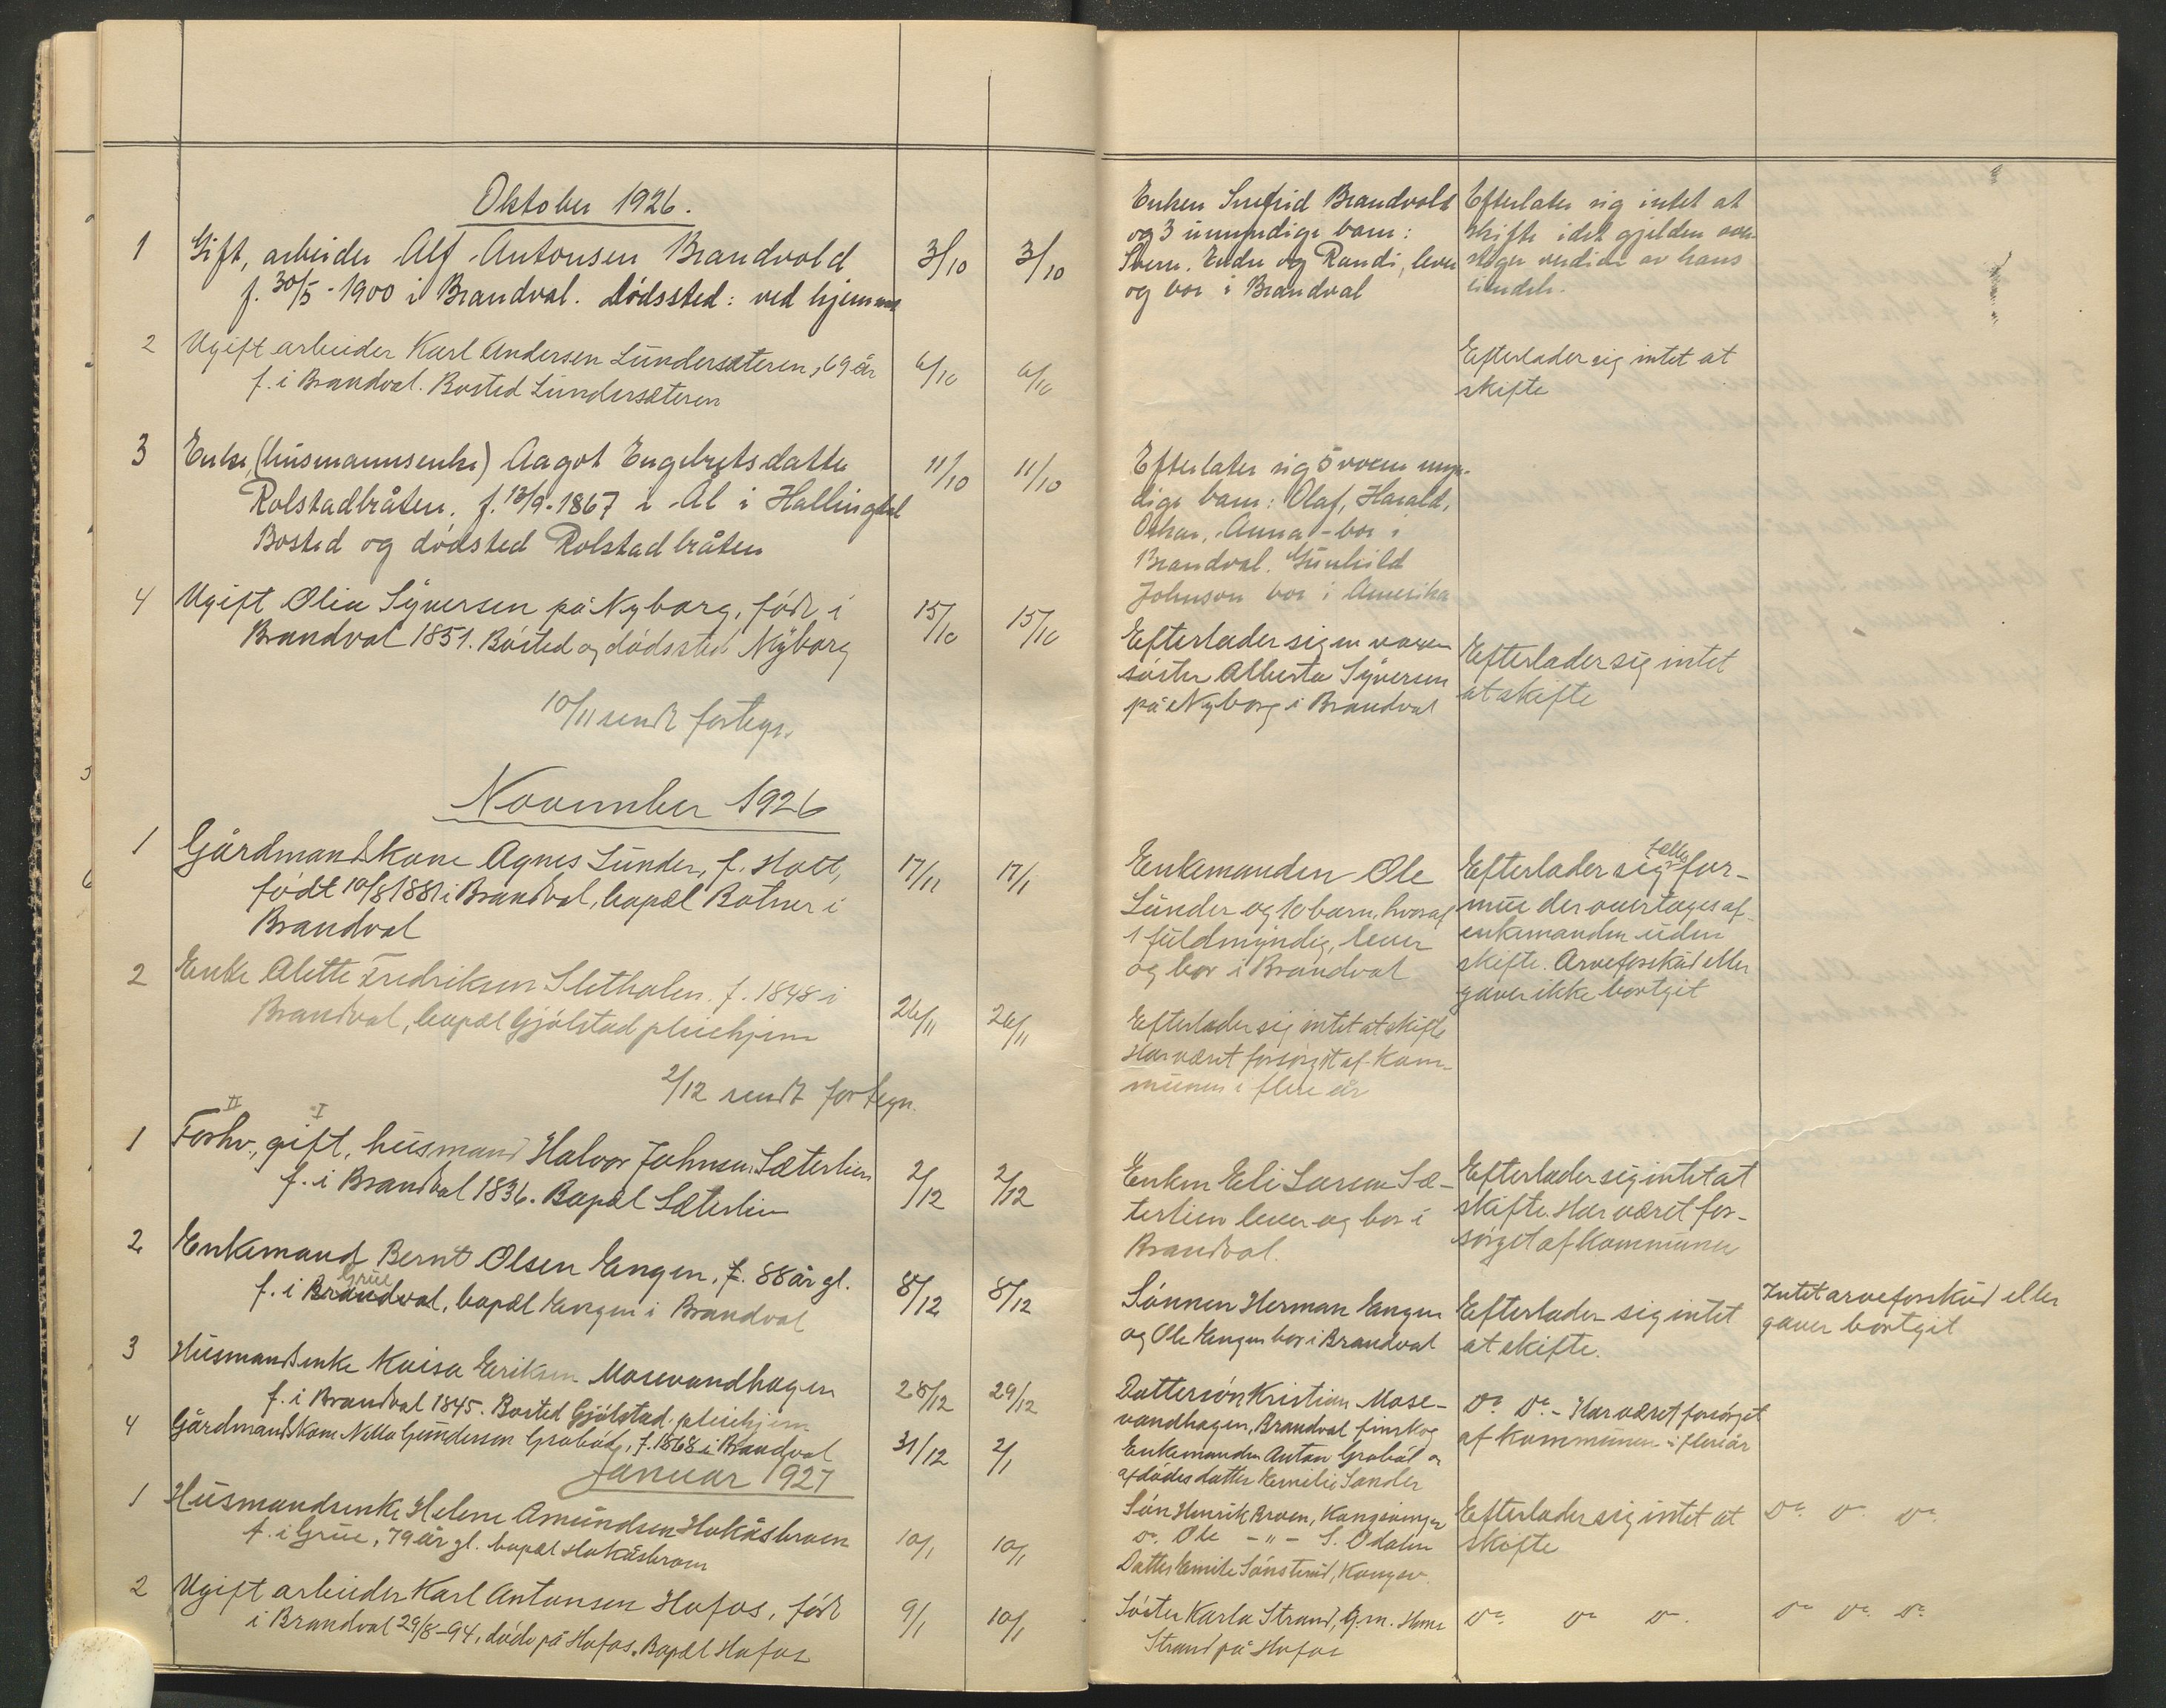 Oktober 1926.
1 Gift, arbeider Alf Antonsen Brandvold 3/10 3/10
f. 30/5-1900 i Brandval. Dödssted: ved hjemmet
2 Ugift arbeider Karl Andersen Lundersæteren, 69 år 6/10 6/10
f. i Brandval. Bosted Lundersæteren
3 Enke, (husmannsenke) Aagot Engebretsdatter 11/10 11/10
Rolstadbråten. f. 13/9-1867 i Ål i Hallingdal
Bosted og dödsted Rolstadbråten
4 Ugift Olia Syversen på Nyborg, född i 15/10 15/10
Brandval 1851. Bosted og dödssted Nyborg
10/11 sendt fortegn.
November 1926
1 Gårdmandskone Agnes Lunder, f. Hott, 17/11 17/1
födt 10/8 1881 i Brandval, bopæl Rotner i
Brandval
2 Enke Alette Fredriksen Sletholen. f. 1848 i 26/11 26/11
Brandval, bopæl Gjölstad pleiehjem
2/12 sendt fortegn.
II I
1 Forhv., gift, husmand Halvor Johnsen Sæterlien 2/12 2/12
f. i Brandval 1836. Bopæl Sæterlien
2 Enkemand Bernt Olsen Engen, f. 88 år gl. 8/12 8/12
Grue
f. i Brandval, bopæl Engen i Brandval
3 Husmandsenke Kaisa Eriksen Mosevandhagen 28/12 29/12
f. i Brandval 1845. Bosted Gjölstad pleiehjem
4 Gårdmandskone Netta Gundersen Graböl, f. 1868 i Brandval 31/12 2/1
Januar 1927
1 Husmandsenke Helene Amundsen Hokåsbroen 10/1 10/1
f. i Grue, 79 år gl. bopæl Hokåsbroen
2 Ugift arbeider Karl Antonsen Hofos, född 9/1 10/1
i Brandval 29/8-94, döde på Hofos. Bopæl Hofos
Enken Brandvold
og 3 umyndige barn:
Sverre, Endre og Randi, lever
og bor i Brandval
Efterlater sig intet at
skifte idet gjelden over-
stiger verdien av hans
eiendele.
Efterlader sig intet at
skifte
Efterlater sig 5 voksne myn-
dige barn: Olaf, Harald,
Oskar, Anna - bor i
Brandval. Gunhild
Johnson bor i Amerika
Efterlader sig en voxen
söster Alberta Syversen
på Nyborg i Brandval
Efterlader sig intet
at skifte
Enkemanden Ole
Lunder og 10 barn, hvoraf
1 fuldmyndig, lever
og bor i Brandval
fælles
Efterlader sig for-
mue der overtages af
enkemanden uden
skifte. Arveforskud eller
gaver ikke bortgit
Efterlader sig intet at skifte
Har været forsörgt af kom-
munen i flere år
Enken Eli Larsen Sæ-
terlien lever og bor i
Brandval.
Efterlader sig intet at
skifte. Har været for-
sörget af kommunen
Sönnen Herman Engen
og Ole Engen bor i Brandval
Efterlader sig intet
at skifte.
Intet arveforskud eller
gaver bortgit
Dattersön Kristian Mose-
vandhagen, Brandval finskog
Do. Do. - Har været forsörget
af kommunen i flere år
Enkemanden Anton Graböl og
afdödes datter Emilie Sander
Sön Henrik Broen, Kongsvinger
Do. Ole - " - S. Odalen
Datter Emilie Sönsterud, Kongsv.
Efterlader sig intet at
skifte
Do. Do. Do.
Söster Karla Strand, G.m. Hans
Strand på Hofos
Do. Do. Do.
Do. Do. Do.